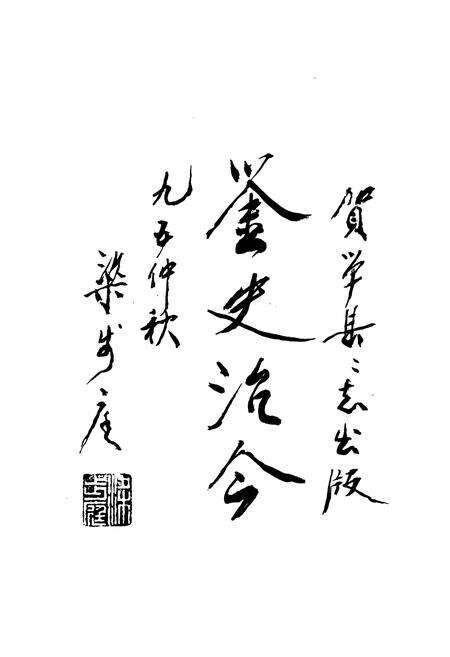 賀单县〻志出版
鉴史治今
九五仲秋
梁步庭
梁步庭